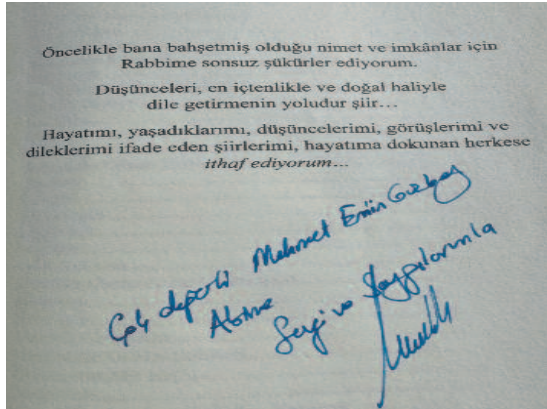 Öncelikle bana bahşetmiş olduğu nimet ve imkânlar için
Rabbime sonsuz şükürler ediyorum.
Düşünceleri, en içtenlikle ve doğal haliyle
dile getirmenin yoludur şiir...
Hayatımı, yaşadıklarımı, düşüncelerimi, görüşlerimi ve
dileklerimi ifade eden şiirlerimi, hayatıma dokunan herkese
ithaf ediyorum...
Çok değerli Mehmet Emin
Abime
Sevgi ve Saygılarımla